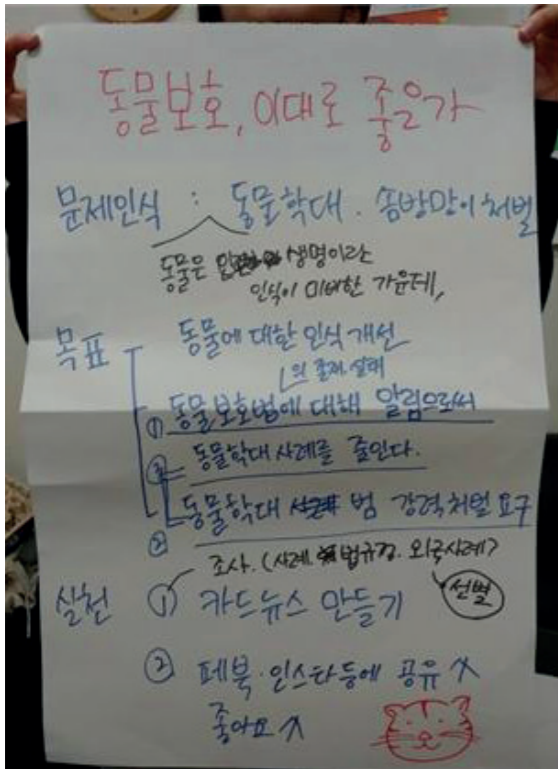 동물보호, 이대로 좋은가
문제인식 : 동물학대. 솜방망이 처벌
동물은 생명이란
인식이 미비한 가운데,
목표 동물에 대한 인식 개선
의 존재, 실태
① 동물보호법에 대해 알림으로써
③ 동물학대 사례를 줄인다.
② 동물학대 범 강력처벌 요구
조사. (사례, 법규정. 외국사례)
선별
실천 ① 카드뉴스 만들기
② 페북·인스타등에 공유
좋아요